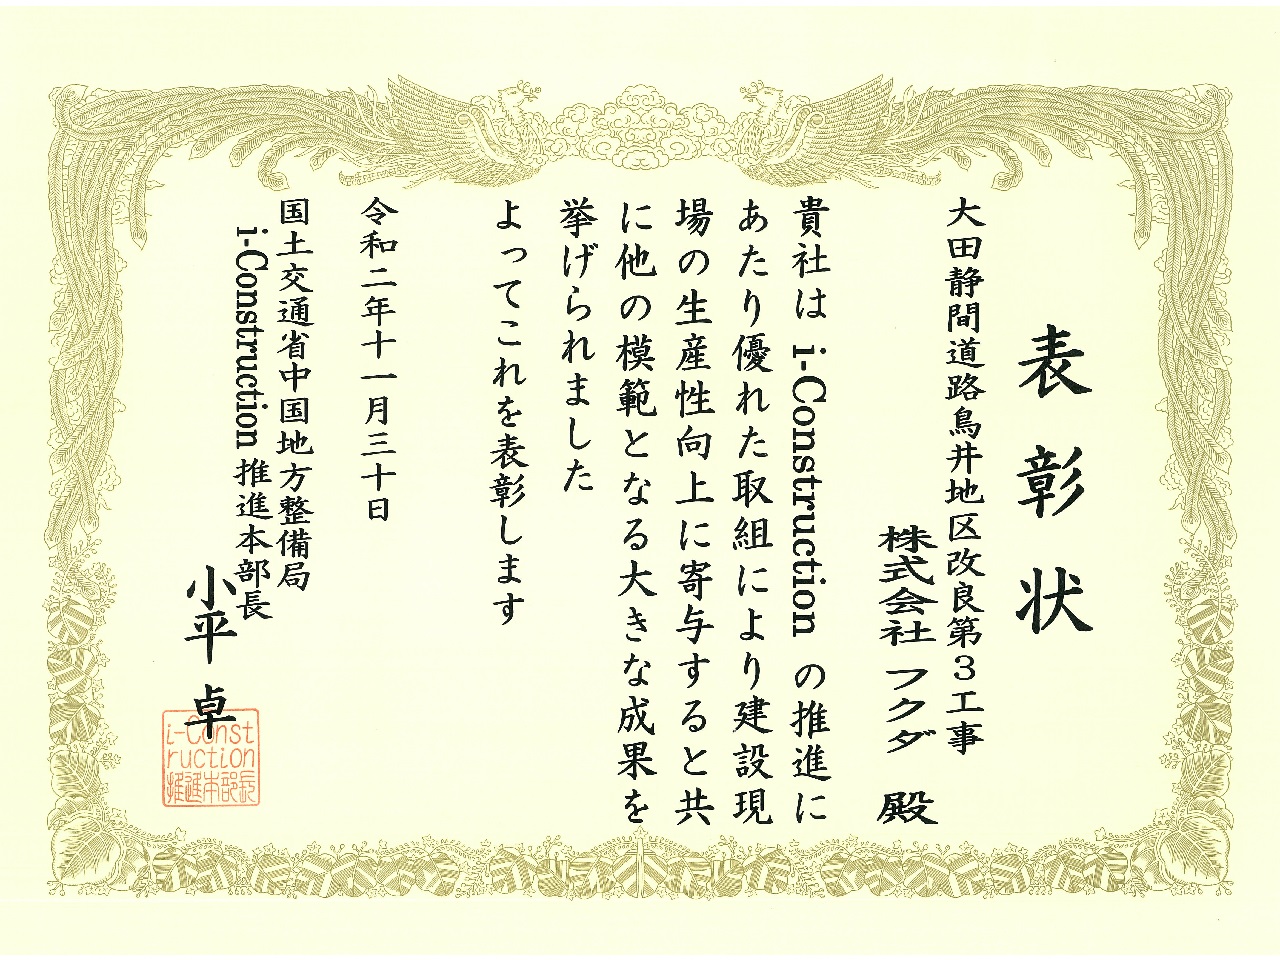 表彰状
大田静間道路鳥井地区改良第３工事
株式会社 フクダ 殿
貴社は i-Construction の推進に
あたり優れた取組により建設現
場の生産性向上に寄与すると共
に他の模範となる大きな成果を
挙げられました
よってこれを表彰します
令和二年十一月三十日
国土交通省中国地方整備局
i-Construction 推進本部長
小平 卓
i-Const
ruction
推進本部長